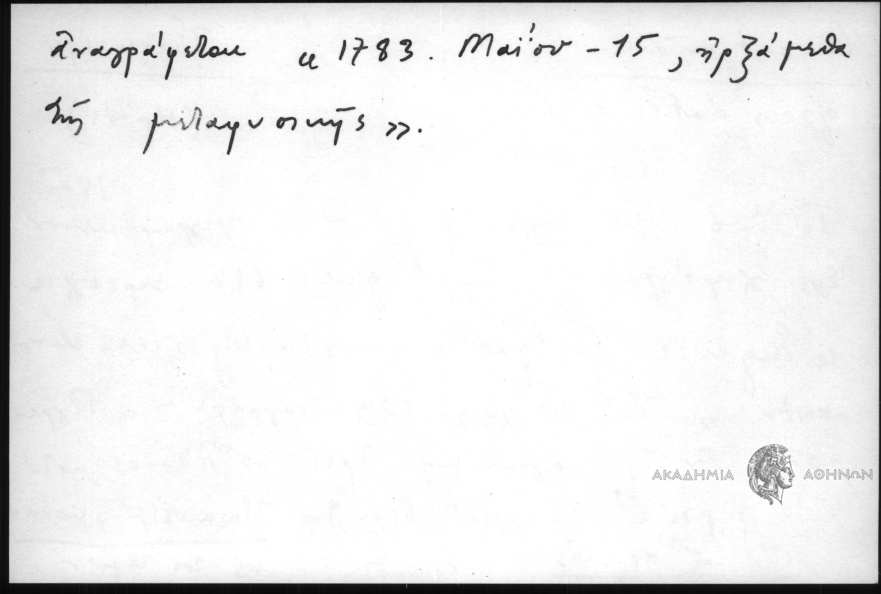 ἀναγράφεται « 1783. Μαΐου - 15, ἠρξάμεθα
τῆς μεταφυσικῆς ».
ΑΚΑΔΗΜΙΑ ΑΘΗΝΩΝ